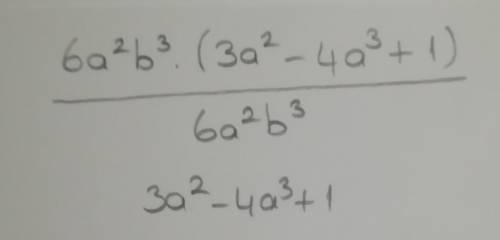 6a²b³. (3a² - 4a³ + 1)
6a²b³
3a² - 4a³ + 1